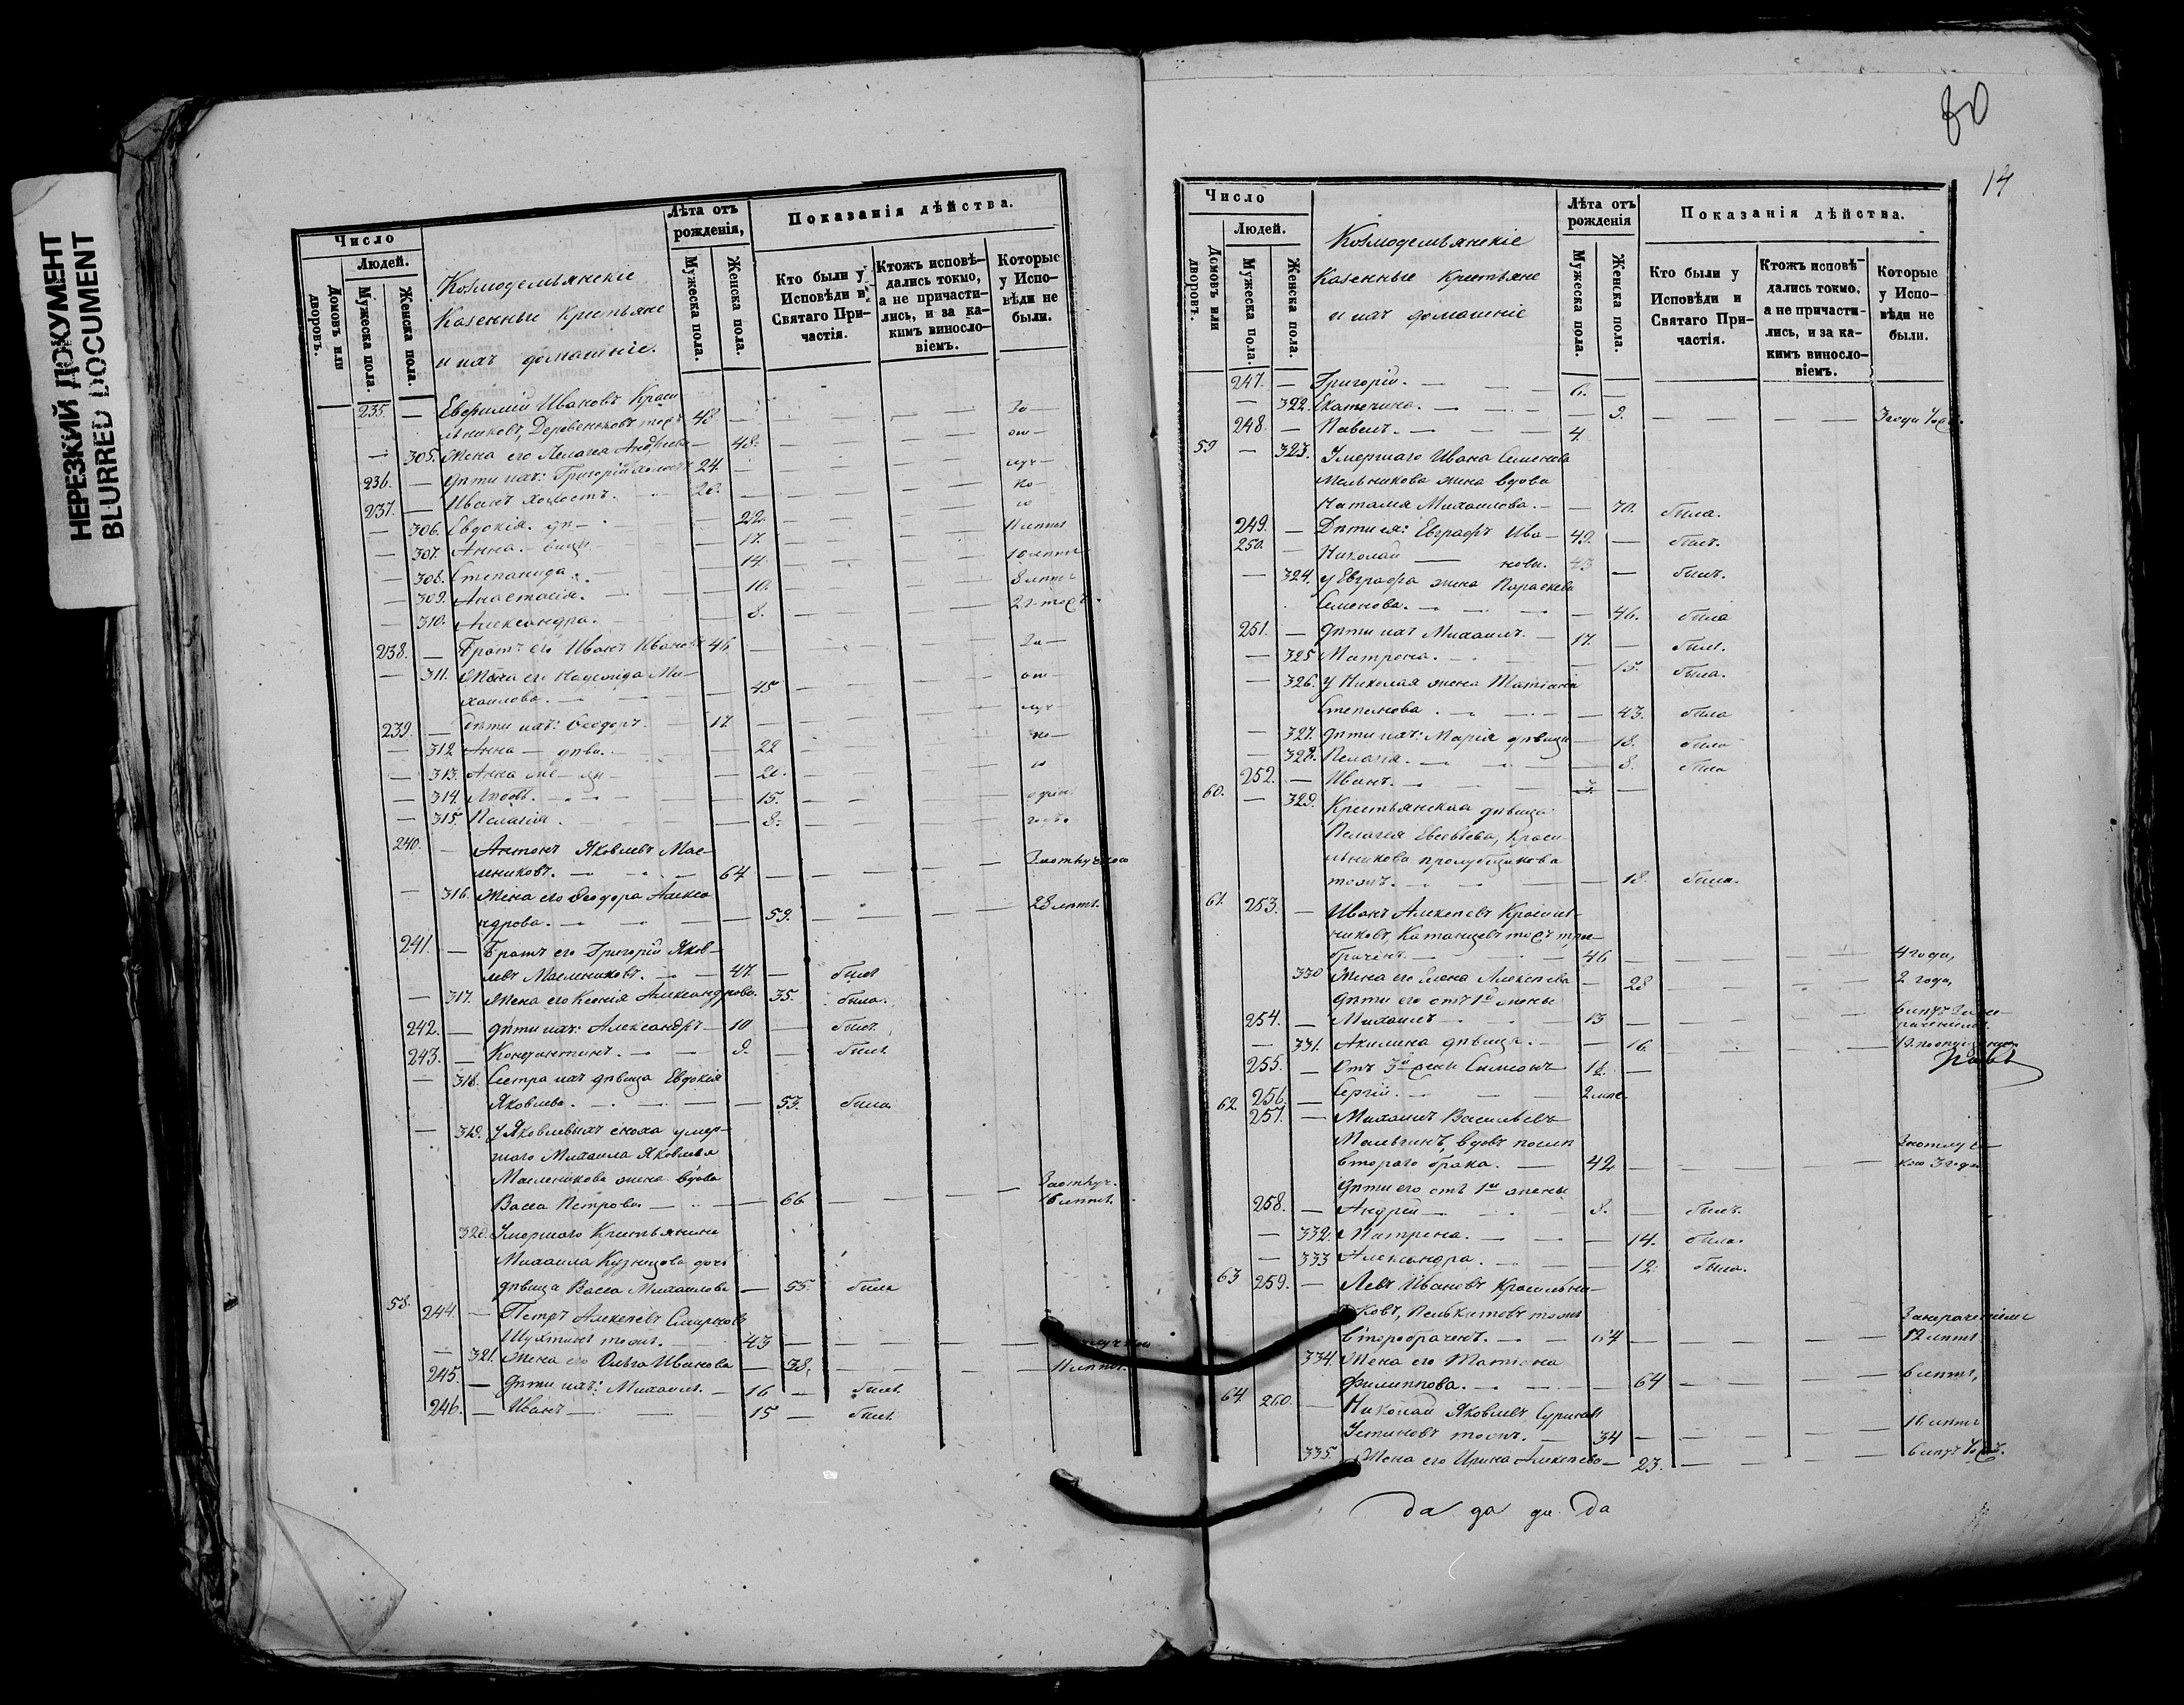 НЕРЕЗКИЙ ДОКУМЕНТ
BLURRED DOCUMENT
Число
Людей.
Домовъ или дворовъ.
Мужеска пола.
Женска пола.
Козмодемьянскіе
Казенные Крестьяне
и ихъ домашніе.
Лѣта отъ рожденія,
Мужеска пола.
Женска пола.
Показанія дѣйства.
Кто были у Исповѣди и Святаго Причастія.
Ктожъ исповѣдались токмо, а не причастились, и за какимъ винословіемъ.
Которые у Исповѣди не были.
235. — Евфимій Ивановъ Краси
льниковъ, 48 — За —
— 305. Жена его Пелагея Андреева — 48. от —
236. — Дѣти ихъ: Григорій холостъ 24. — луч —
237. — Иванъ холостъ. 20. — ко —
— 306. Евдокія. дѣ — 22. ю
— 307. Анна. — 17. 11 лѣтъ
— 308. Степанида. — 14. 10 лѣтъ
— 309. Анастасія. — 10. 8 лѣтъ
— 310. Александра. — 8.
238. — Братъ его Иванъ Ивановъ 46 — За —
— 311. Жена его Надежда Ми-
хаилова. — 45 от —
239. — Дѣти ихъ: Ѳеодоръ. — 17 — луч —
— 312 Анна — дѣви. — 22 ко —
— 313. Анна — 20. ю
— 314. Любовь. — 15. одинъ
— 315. Пелагія. — 8. годъ.
240. — Антонъ Яковлевъ Мас-
лениковъ. — 64 — За отлучкою
— 316. Жена его Ѳеодора Алекса
ндрова. — 59. 28 лѣтъ.
241. — Братъ его Григорій Яков-
левъ Маслениковъ. — 47. — былъ
— 317. Жена его Ксенія Александрова. 35. была.
242. — Дѣти ихъ: Александръ — 10 — былъ.
243. — Константинъ. — 9. — былъ
— 318. Сестра ихъ дѣвица Евдокія
Яковлева. — 53. была
— 319. У Яковлевыхъ сноха умер-
шаго Михаила Яковлева
Масленикова жена вдова
Васса Петрова. — 66 За отлуч. 16 лѣтъ.
320. Умершаго Крестьянина
Михаила Кузнецова дочь
дѣвица Васса Михаилова — 55. была
58. 244. — Петръ Алексѣевъ Смирновъ
Шухтинъ тожъ. 43 —
— 321. Жена его Ольга Иванова — 38. 11 лѣтъ.
245. — Дѣти ихъ: Михаилъ. — 16 — былъ.
246. — Иванъ — 15 — былъ.
80
14
Число
Людей.
Домовъ или дворовъ.
Мужеска пола.
Женска пола.
Козмодемьянскіе
Казенные Крестьяне
и ихъ домашніе
Лѣта отъ рожденія
Мужеска пола.
Женска пола.
Показанія дѣйства.
Кто были у Исповѣди и Святаго Причастія.
Ктожъ исповѣдались токмо, а не причастились, и за какимъ винословіемъ.
Которые у Исповѣди не были.
247. — Григорій. — 6. —
— 322. Екатерина. — 9.
248. — Павелъ. — 4.
59 — 323. Умершаго Ивана Семенова
Мельникова жена вдова
Наталія Михаилова. — 70. была.
249. — Дѣти ея: Евграфъ Ива — 49. — былъ.
250. — Николай — новы. 43 — былъ.
— 324. У Евграфа жена Параскева
Семенова. — 46. была
251. — Дѣти ихъ Михаилъ. — 17. — былъ.
— 325 Матрона. — 15. была.
— 326. У Николая жена Татіана
Степанова. — 43. была
— 327. Дѣти ихъ: Марія дѣвица — 18. была
— 328. Пелагія. — 8. была
252. — Иванъ. — 3. —
60. — 329. Крестьянская дѣвица
Пелагея Евсевіева, Краси
льникова
тожъ. — 18. была.
61. 253. — Иванъ Алексѣевъ Красиль-
никовъ, Катанцевъ тожъ трое-
браченъ. — 46 — 4 года,
330 Жена его Елена Алексѣева — 28 2 года,
Дѣти его отъ 1й жены
254. — Михаилъ — 13 —
— 331. Акилина дѣвица. — 16.
255. — Отъ 3й жены Симеонъ 12. —
256. — Сергій. — 2
62. 257. — Михаилъ Васильевъ
Малыгинъ, вдовъ послѣ
втораго брака. — 42 — За отлуч-
кою 3 года
Дѣти его отъ 1й жены
258. — Андрей — 8. — былъ.
— 332. Матрена. — 14. была.
— 333 Александра. — 12. была.
63 259. — Левъ Ивановъ Красильни-
ковъ, тожъ
второбраченъ. — 64 — 12 лѣтъ
334. Жена его Татіана
Филиппова. — 64 6 лѣтъ,
64 260. — Николай Яковлевъ
Устиновъ тожъ. — 34 — 16 лѣтъ
335. Жена его Ирина Алексѣева — 23.
да да да да